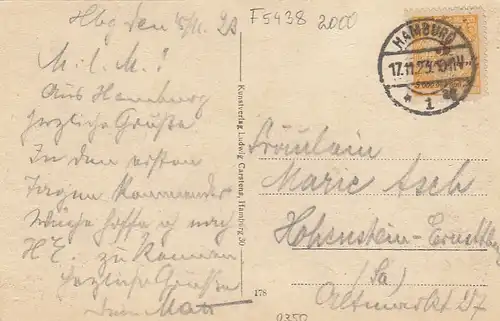 Hbg den 15/11. 23
F5438 2000
M. l. M.!
Aus Hamburg
herzliche Grüße
In den ersten
Tagen kommender
Woche hoffe ich nach
H.E. zu kommen
Herzliche Grüße
dein Max
Kunstverlag Ludwig Carstens, Hamburg 30
178
HAMBURG
17.11.23.10-11V.
* 1
Fräulein
Marie Asch
Hohenstein-Ernstthal
(Sa)
Altmarkt 27
9350